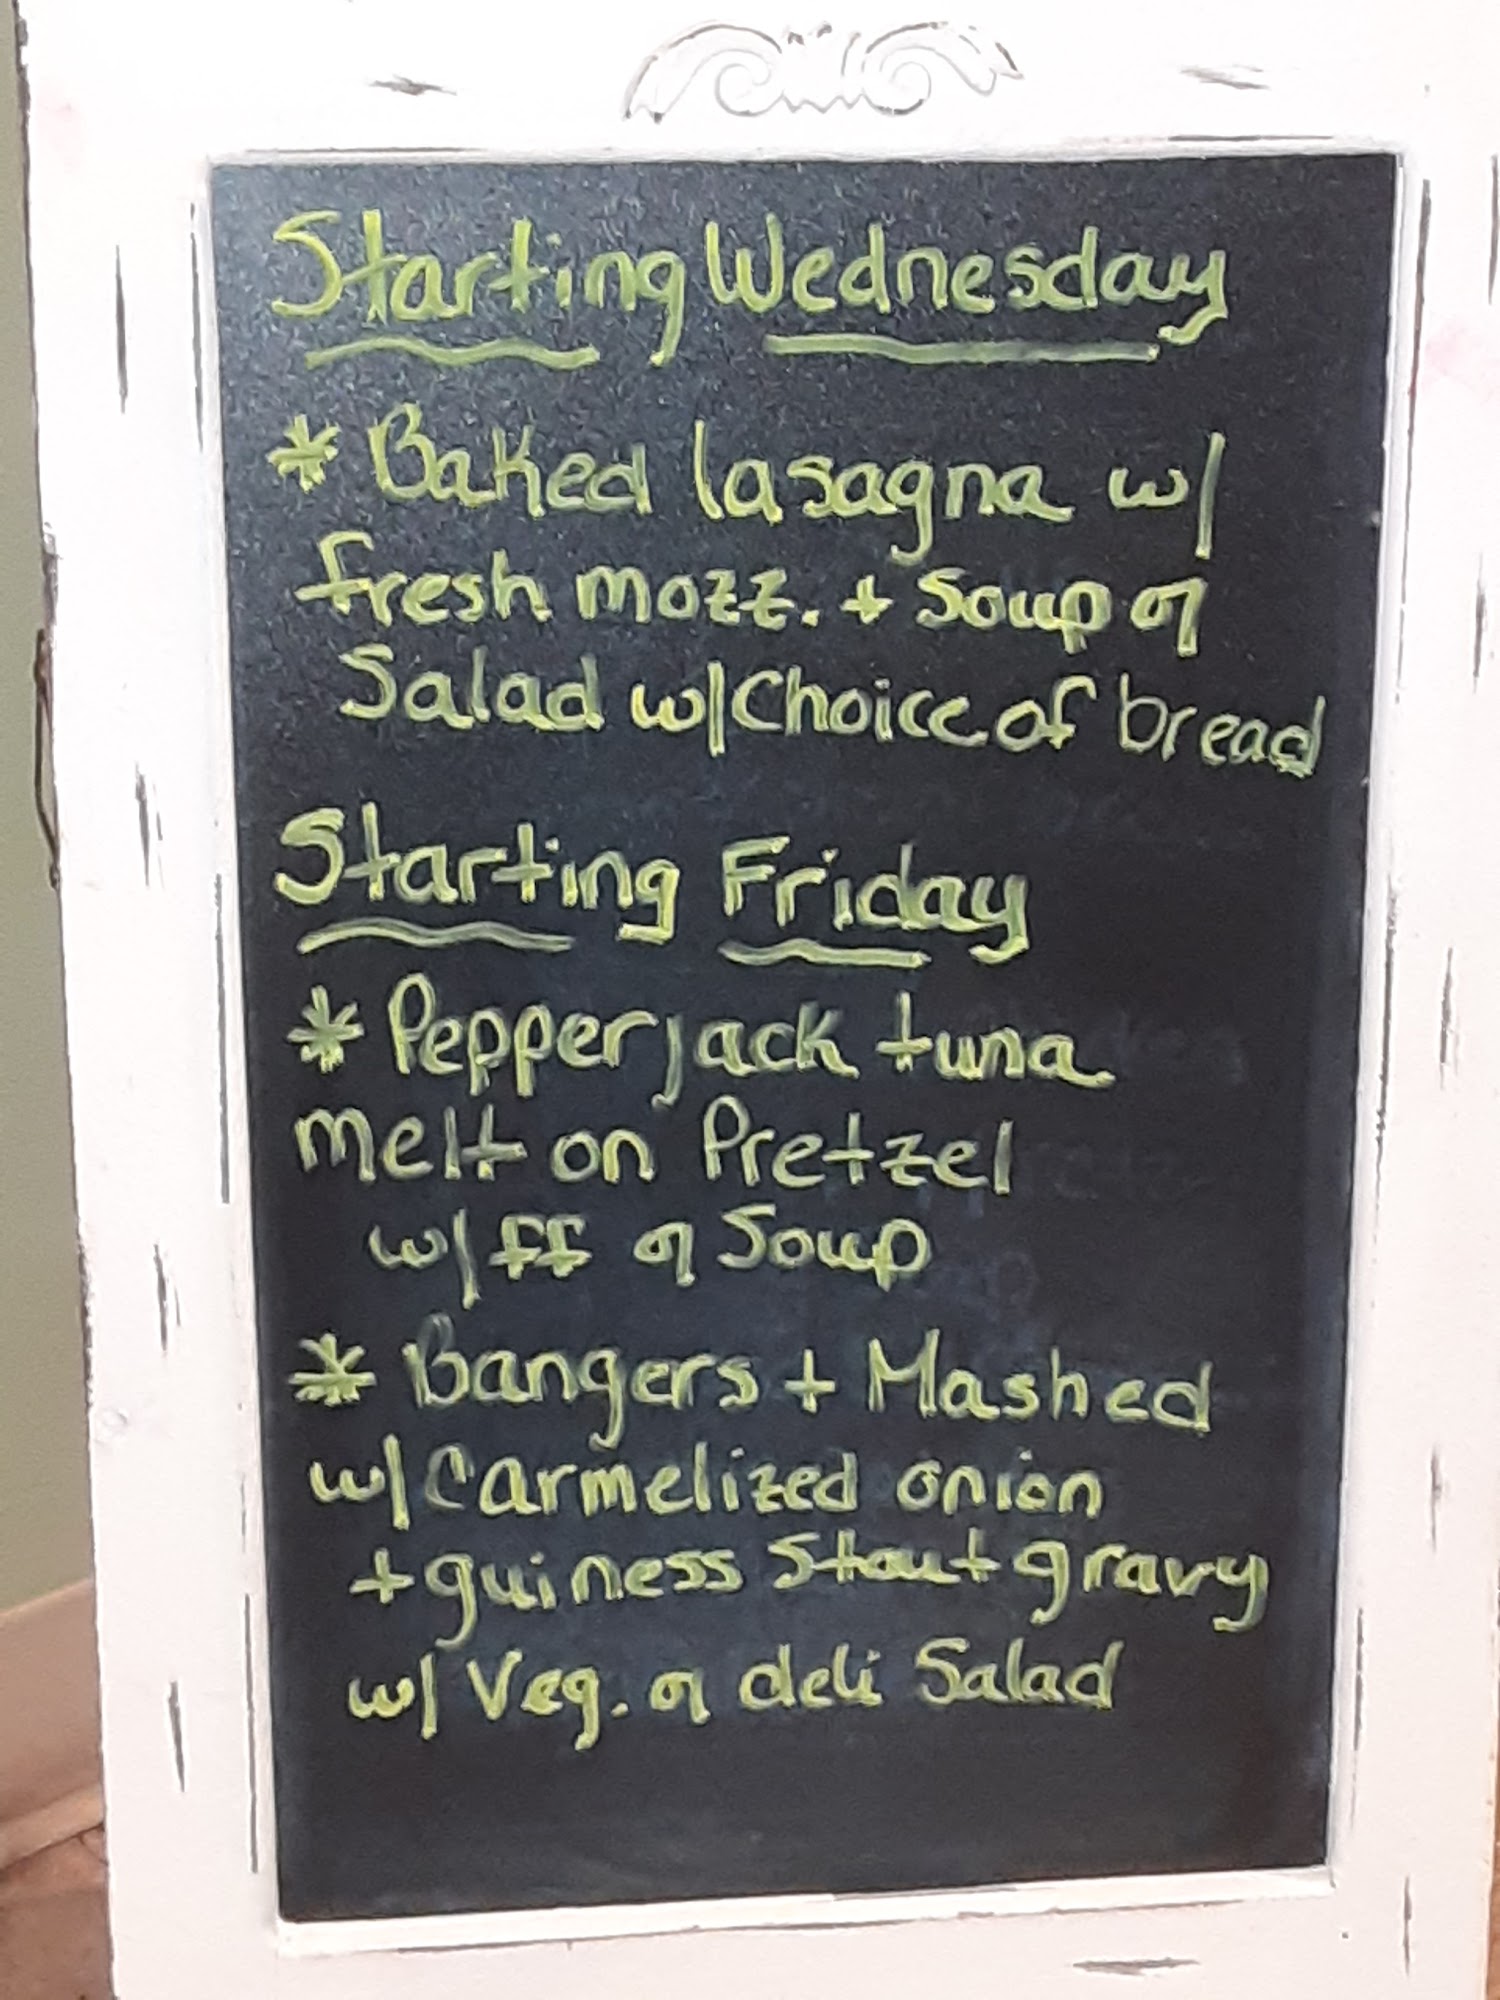 Starting Wednesday
* Baked lasagna w/
fresh mozz. + Soup or
Salad w/ Choice of bread
Starting Friday
* Pepperjack tuna
melt on Pretzel
w/ ff or Soup
* Bangers + Mashed
w/ Carmelized onion
+ guiness Stout gravy
w/ Veg. or deli Salad